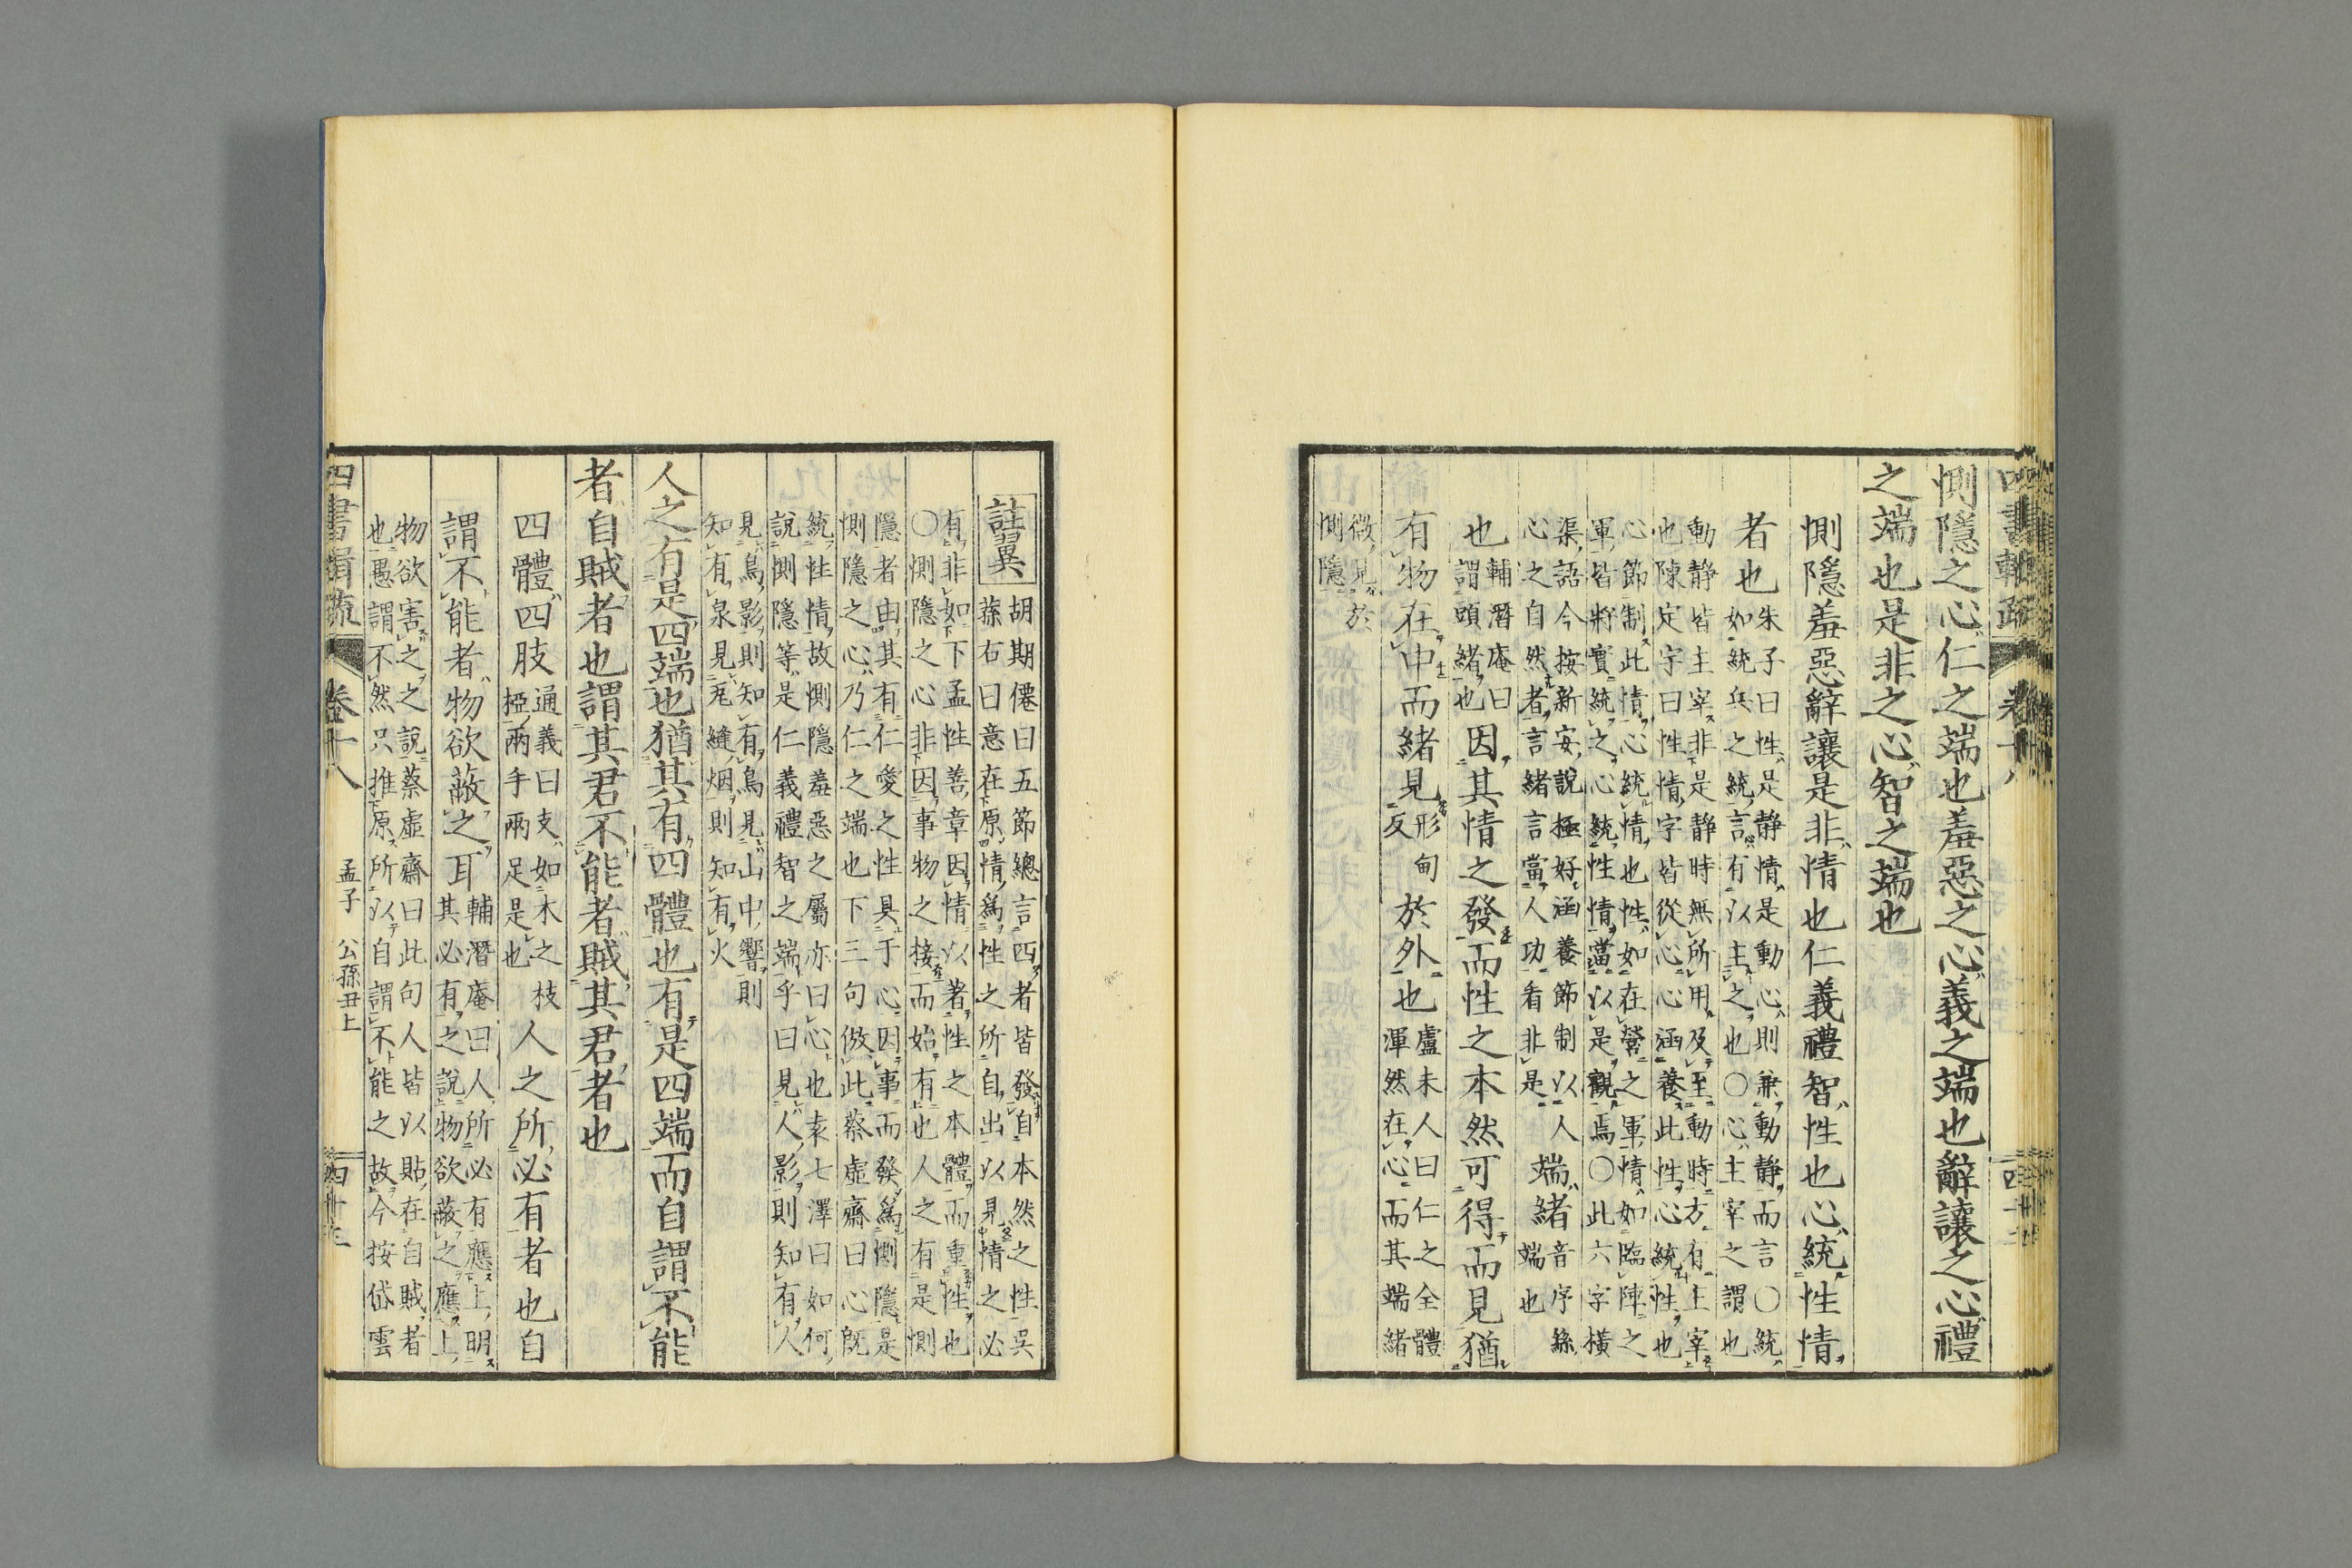 四書輯疏 卷十八
惻隱之心仁之端也羞惡之心義之端也辭讓之心禮
之端也是非之心智之端也
惻隱羞惡辭讓是非情也仁義禮智性也心統性情
者也
朱子曰性是静情是動心則兼動静而言○統
如統兵之統言有以主之也○心主宰之謂也
動静皆主宰非是静時無所用及至動時方有主宰
也陳定宇曰性情字皆從心心涵養此性心統性也
心節制此情心統情也性如在營之軍情如臨陣之
軍皆將實統之心統性情當以是觀焉○此六字橫
渠語今按新安說極好涵養節制以人
心之自然者言緒言當人功看非是
端緒
音序絲
端也
也
輔潛庵曰
謂頭緒也
因其情之發而性之本然可得而見猶
有物在中而緒見
形甸
反
於外也
盧未人曰仁之全體
渾然在心而其端緒
微見於
惻隱
註翼
胡期僊曰五節總言四者皆發自本然之性吳
蓀右曰意在原情爲性之所自出以見情之必
有非如下孟性善章因情以著性之本體而重性也
○惻隱之心非因事物之接而始有也人之有是惻
隱者由其有仁愛之性具于心因事而發爲惻隱是
惻隱之心乃仁之端也下三句倣此蔡虛齋曰心旣
統性情故惻隱羞惡之屬亦曰心也袁七澤曰如何
說惻隱等是仁義禮智之端乎曰見人影則知有人
見鳥影則知有鳥見山中響則
知有泉見瓦縫烟則知有火
人之有是四端也猶其有四體也有是四端而自謂不能
者自賊者也謂其君不能者賊其君者也
四體四肢
通義曰支如木之枝
椏兩手兩足是也
人之所必有者也自
謂不能者物欲蔽之耳
輔潛庵曰人所必有應上明
其必有之說物欲蔽之應上
物欲害之之說蔡虛齋曰此句人皆以貼在自賊者
也愚謂不然只推原所以自謂不能之故今按岱雲
四書輯疏 卷十八 孟子 公孫丑上